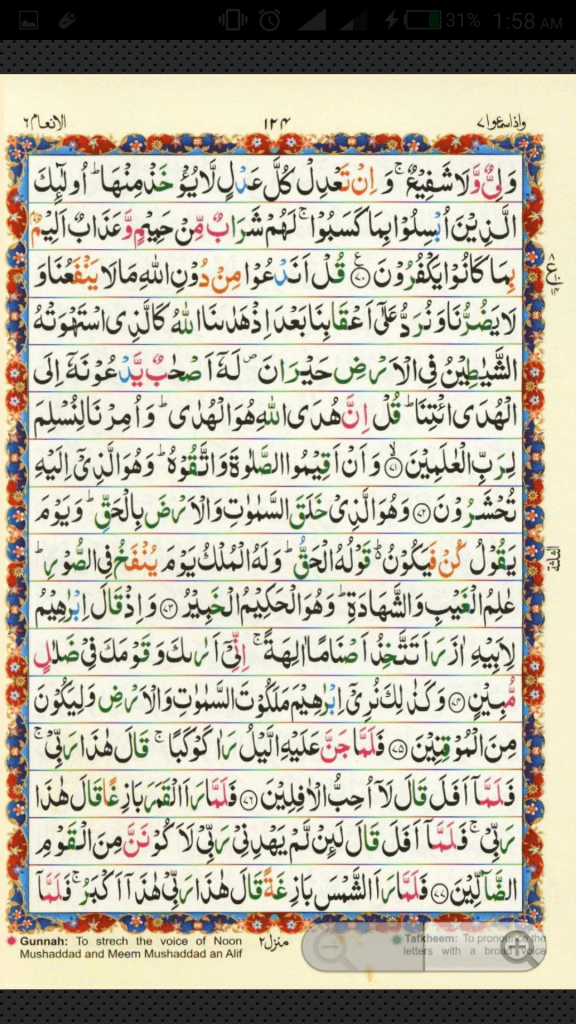 31% 1:58 AM
الانعام ٦ ١٢٤ واذاسمعوا ٧
وَلِیٌّ وَّلَا شَفِیْعٌ ۚ وَ اِنْ تَعْدِلْ كُلَّ عَدْلٍ لَّا یُؤْخَذْ مِنْهَا ؕ اُولٰٓئِكَ
الَّذِیْنَ اُبْسِلُوْا بِمَا كَسَبُوْا ۚ لَهُمْ شَرَابٌ مِّنْ حَمِیْمٍ وَّعَذَابٌ اَلِیْمٌۢ
بِمَا كَانُوْا یَكْفُرُوْنَ ﴿۷۰﴾ قُلْ اَنَدْعُوْا مِنْ دُوْنِ اللّٰهِ مَا لَا یَنْفَعُنَا وَ
لَا یَضُرُّنَا وَنُرَدُّ عَلٰۤی اَعْقَابِنَا بَعْدَ اِذْ هَدٰىنَا اللّٰهُ كَالَّذِی اسْتَهْوَتْهُ
الشَّیٰطِیْنُ فِی الْاَرْضِ حَیْرَانَ ۪ لَهٗۤ اَصْحٰبٌ یَّدْعُوْنَهٗۤ اِلَی
الْهُدَی ائْتِنَا ؕ قُلْ اِنَّ هُدَی اللّٰهِ هُوَ الْهُدٰی ؕ وَاُمِرْنَا لِنُسْلِمَ
لِرَبِّ الْعٰلَمِیْنَ ﴿ۙ۷۱﴾ وَاَنْ اَقِیْمُوا الصَّلٰوةَ وَاتَّقُوْهُ ؕ وَهُوَ الَّذِیْۤ اِلَیْهِ
تُحْشَرُوْنَ ﴿۷۲﴾ وَهُوَ الَّذِیْ خَلَقَ السَّمٰوٰتِ وَالْاَرْضَ بِالْحَقِّ ؕ وَیَوْمَ
یَقُوْلُ كُنْ فَیَكُوْنُ ؕ۬ قَوْلُهُ الْحَقُّ ؕ وَلَهُ الْمُلْكُ یَوْمَ یُنْفَخُ فِی الصُّوْرِ ؕ
عٰلِمُ الْغَیْبِ وَالشَّهَادَةِ ؕ وَهُوَ الْحَكِیْمُ الْخَبِیْرُ ﴿۷۳﴾ وَاِذْ قَالَ اِبْرٰهِیْمُ
لِاَبِیْهِ اٰزَرَ اَتَتَّخِذُ اَصْنَامًا اٰلِهَةً ۚ اِنِّیْۤ اَرٰىكَ وَقَوْمَكَ فِیْ ضَلٰلٍ
مُّبِیْنٍ ﴿۷۴﴾ وَكَذٰلِكَ نُرِیْۤ اِبْرٰهِیْمَ مَلَكُوْتَ السَّمٰوٰتِ وَالْاَرْضِ وَلِیَكُوْنَ
مِنَ الْمُوْقِنِیْنَ ﴿۷۵﴾ فَلَمَّا جَنَّ عَلَیْهِ الَّیْلُ رَاٰ كَوْكَبًا ۚ قَالَ هٰذَا رَبِّیْ ۚ
فَلَمَّاۤ اَفَلَ قَالَ لَاۤ اُحِبُّ الْاٰفِلِیْنَ ﴿۷۶﴾ فَلَمَّا رَاَ الْقَمَرَ بَازِغًا قَالَ هٰذَا
رَبِّیْ ۚ فَلَمَّاۤ اَفَلَ قَالَ لَىِٕنْ لَّمْ یَهْدِنِیْ رَبِّیْ لَاَكُوْنَنَّ مِنَ الْقَوْمِ
الضَّآلِّیْنَ ﴿۷۷﴾ فَلَمَّا رَاَ الشَّمْسَ بَازِغَةً قَالَ هٰذَا رَبِّیْ هٰذَاۤ اَكْبَرُ ۚ فَلَمَّاۤ
ع ٨ ١٠ ١٤
الثلثة
منزل ٢
Gunnah: To strech the voice of Noon
Mushaddad and Meem Mushaddad an Alif
Tafkheem: To pronounce the
letters with a broad voice